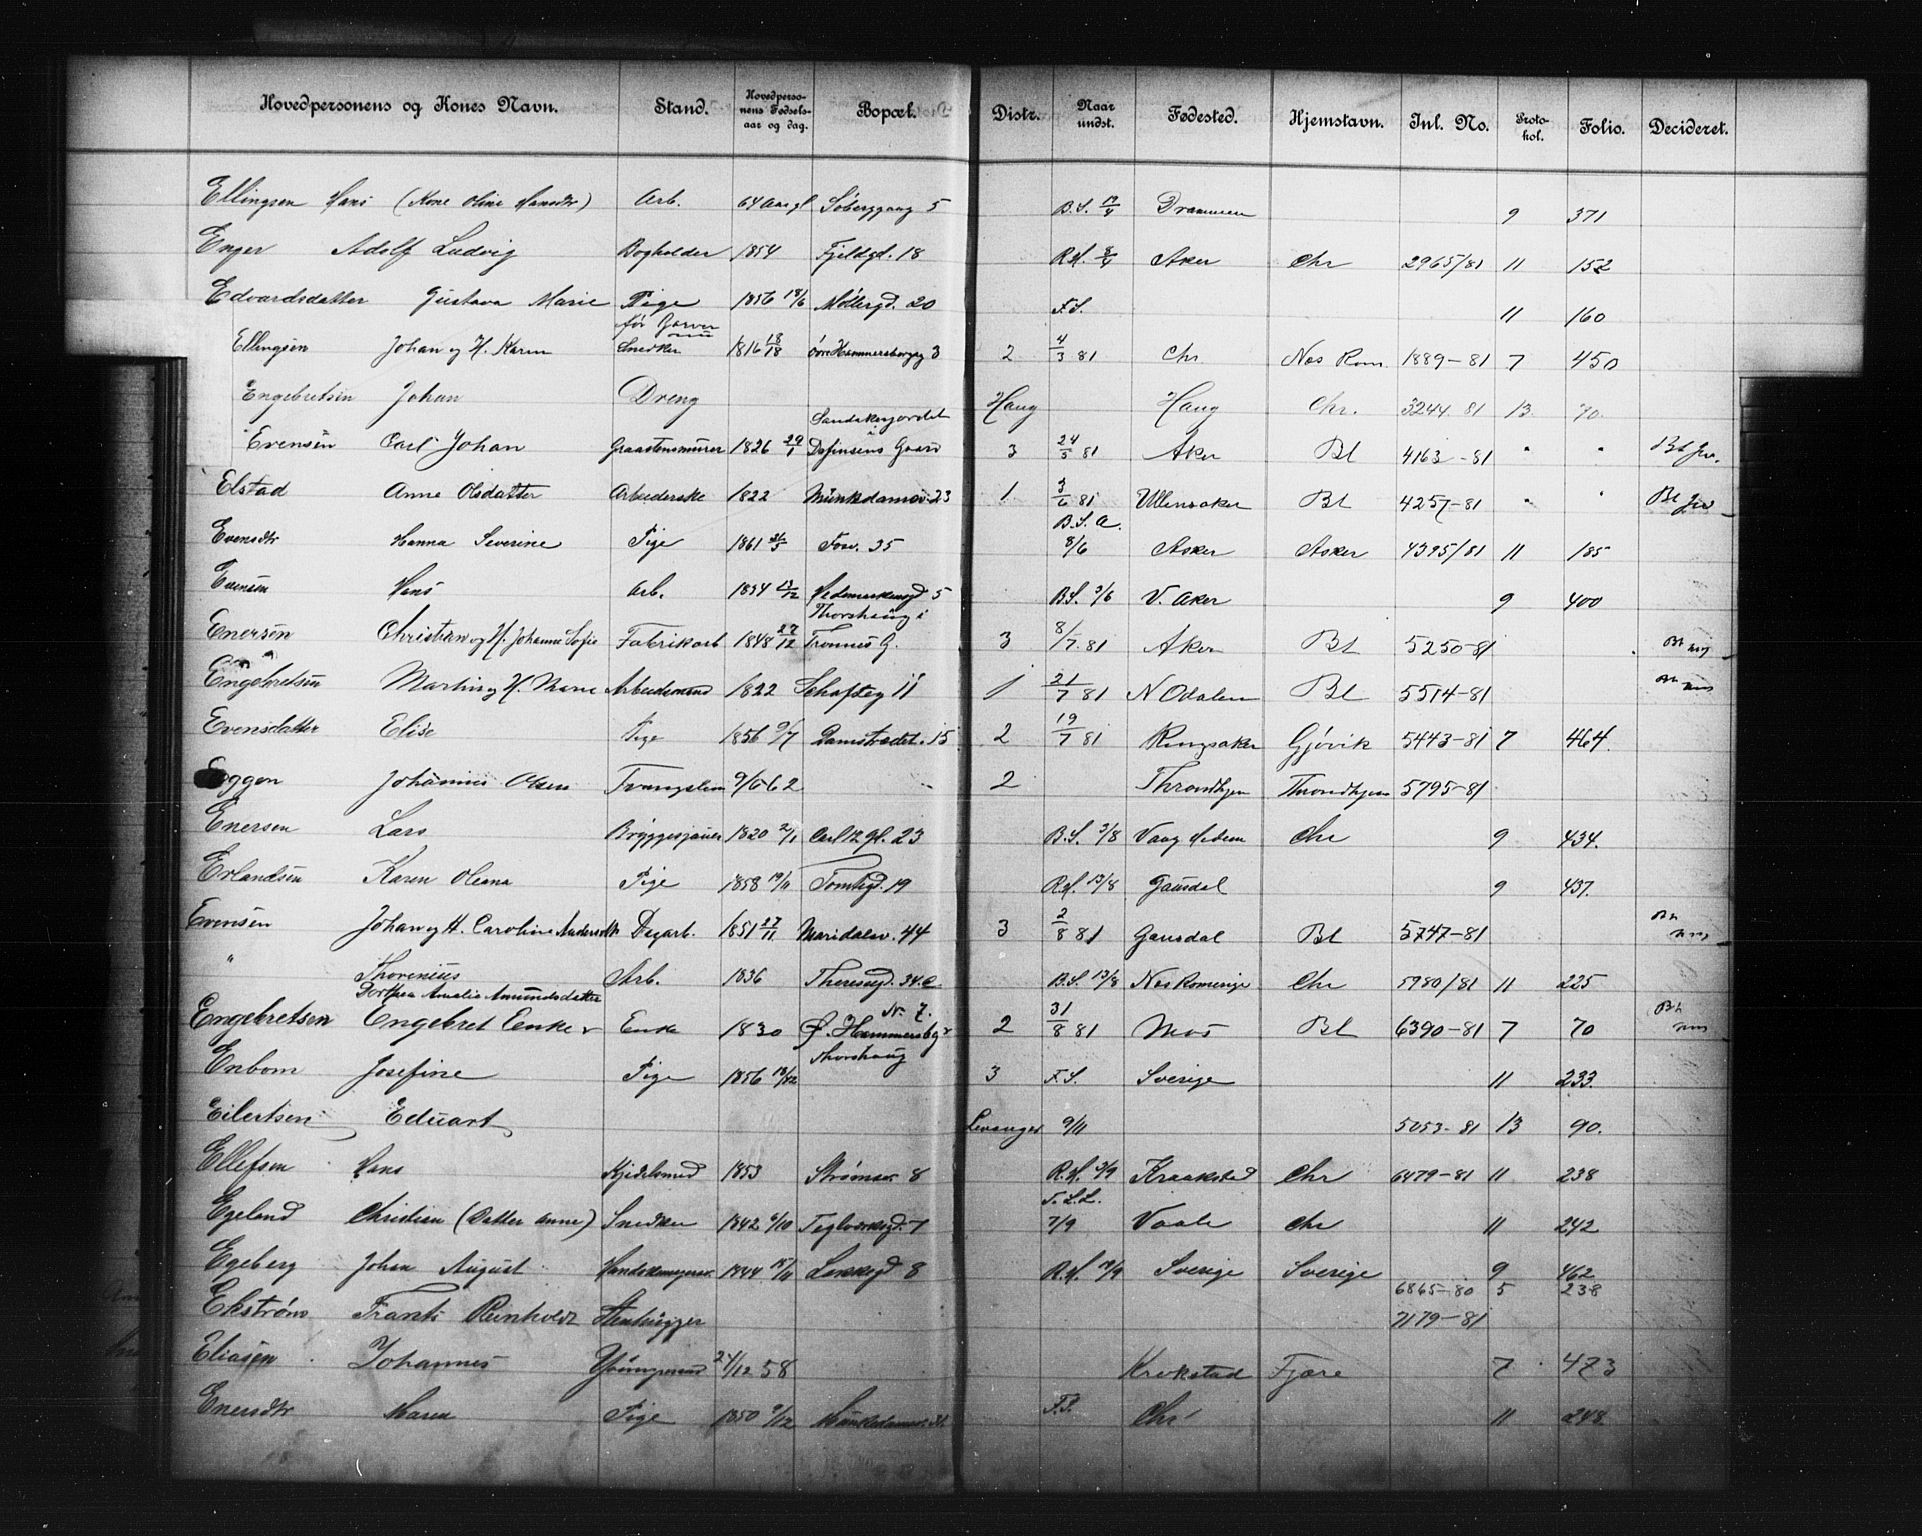 Hovedpersonens og Kones Navn. Stand. Hovedpersonens Fødselsaar og dag. Bopæl. Distr. Naar undst. Fødested. Hjemstavn. Inl. No. Protokol. Folio. Decideret.
Ellingsen Hans (Kone Oline Hansdtr) Arb. 64 Aar gl Søberggang 5 B.S. Drammen 9 371
Enger Adolf Ludvig Bogholder 1854 Fjeldgd. 18 Aker Chr 2965/81 11 152
Edvardsdatter Gustava Marie Pige 1856 18/6 Møllergd. 20 F.S. 11 160
før Garver
Ellingsen Johan og H. Karen Snedker 1816 øvre Hammersborgg 3 2 4/3 81 Chr. Nes Rom. 1889-81 7 450
Engebretsen Johan Dreng Haug Haug Chr. 3244 81 13 70.
Sandakerjordet i
Evensen Carl Johan Graastensmurer 1826 29/1 3 24/5 81 Aker Bl 4163-81 " "
Elstad Anne Olsdatter Arbeiderske 1822 Munkdamsv. 23 1. 3/6 81 Ullensaker Bl 4257-81 " "
B.S.A.
Evensdtr Hanna Severine Pige 1861 Fosv. 35 8/6 Asker Asker 4395/81 11 185
Evensen Hans Arb. 1834 13/12 Hedemarkensgd 5 B.S. 3/6 V. Aker 9 400
Thorshaug i
Enersen Christian og H. Johanne Sofie Fabrikarb 1848 27/12 Tronnes G. 3 8/7. 81 Aker Bl 5250-81
Engebretsen Martin og H. Marie Arbeidsmand 1822 Schafteg 11 1 21/7 81 N Odalen Bl 5514-81
Evensdatter Elise Pige 1856 9/7 Damstrædet. 15 2 19/7 81 Ringsaker Gjøvik 5443-81 7 464.
Eggen Johannes Olsen Tvangslem 9/5 62 2 Throndhjem Throndhjem 5795-81
Enersen Lars Bryggesjauer 1820 2/1 Carl 12 gt. 23 B.S. 3/8 Vang Hedem Chr 9 434.
Erlandsen Karen Oleana Pige 1858 19/11 Tomtegd. 19 13/8 Gausdal 9 437.
Evensen Johan og H. Caroline Andersdtr Dagarb. 1851 27/11 Maridalsv. 44 3 2/8 81 Gausdal Bl 5747-81
" Thorenius Arb. 1836 Theresegd. 34. B.S. 13/8 Nes Romerige Chr 5980/81 11 225
Dorthea Amalie Amundsdatter
Nr. 7.
Engebretsen Engebret Enke Enke 1830 Ø. Hammersbg 2 31/8 81 Mos Bl 6390-81 7 70
Thorshaug
Enbom Josefine Pige 1856 3 F.S. Sverige 11 233.
Eilertsen Eduart Levanger 9/11 5053-81 13 90.
Ellefsen Hans Kjedelsmed 1853 Strømsv. 8 3/9 Kraakstad Chr 6479-81 11 238
Egeland Christian (Datter Anne) Snedker 1842 6/10 Teglverksgd. 7 7/9 Vaale Chr 11 242
Egeberg Johan August Handskemager 1844 15/11 Lakkegd 8 Sverige Sverige 9 462
6865-80 5 238
Ekstrøm Frants Reinholdt Stenhugger 7179-81
Eliasen Johannes 24/12 58 Krokstad Fjære 7 473
Enersdtr Maren Pige 1850 9/12 F.S. Chr 11 248.